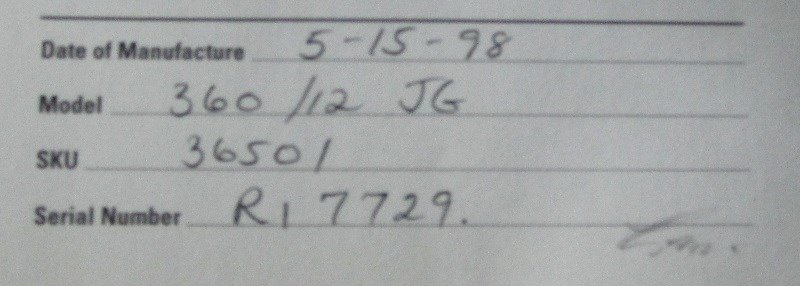 Date of Manufacture 5-15-98
Model 360/12 JG
SKU 36501
Serial Number R1 7729.